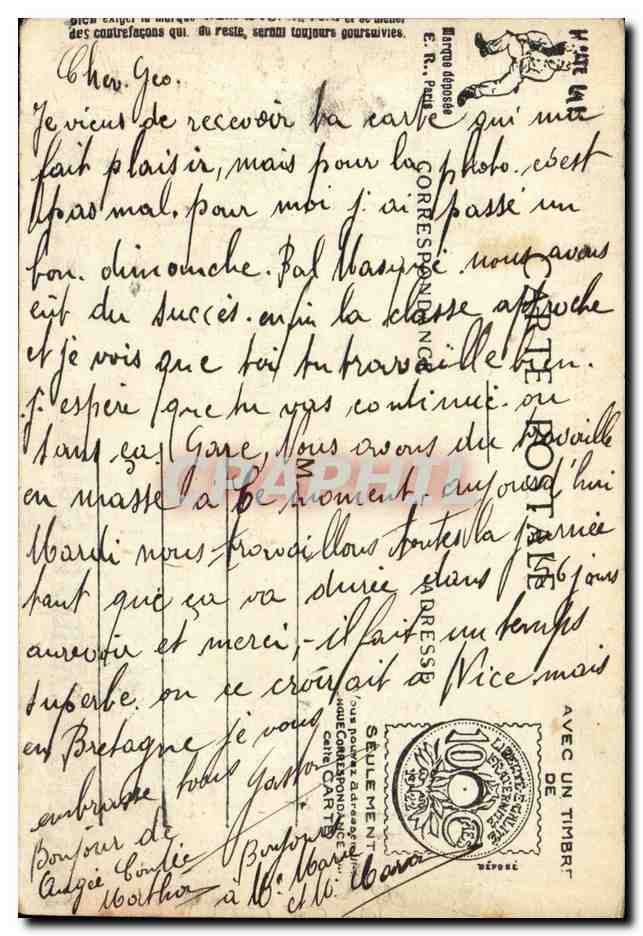 exiger la marque
des contrefaçons qui du reste, seront toujours poursuivies.
Marque déposée
E. R., Paris
CARTE POSTALE
CORRESPONDANCE
ADRESSE
M
Cher Geo.
Je viens de recevoir ta carte qui me
fait plaisir, mais pour la photo c'est
pas mal. pour moi j'ai passé un
bon dimanche. Bal Masqué nous avons
eut du succès. enfin la classe approche
et je vois que toi tu travaille bien.
J'espère que tu vas continué. ou
sans ça Gare, Nous avons du travaille
en masse à ce moment. aujourd'hui
Mardi nous travaillons toutes la journée
tant que ça va durée dans 456 jours
aurevoir et merci, - il fait un temps
superbe. on ce croirait à Nice mais
en Bretagne je vous
embrasse tous Gaston
Bonjour de
Bonjour
à Me Marie
et Mr
AVEC UN TIMBRE
DE
10
LIBERTÉ EGALITÉ
FRATERNITÉ
DÉPOSÉ
SEULEMENT
Vous pouvez adresser
LONGUE CORRESPONDANCE
cette CARTE
CPAPHIL